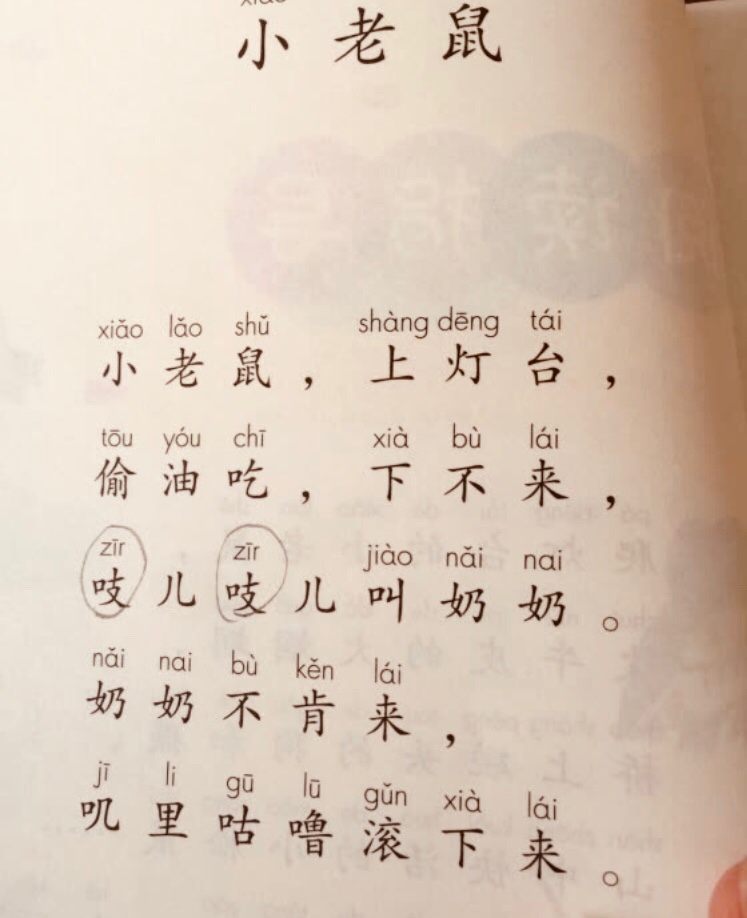 xiǎo
小老鼠
xiǎo lǎo shǔ shàng dēng tái
小老鼠，上灯台，
tōu yóu chī xià bù lái
偷油吃，下不来，
zīr zīr jiào nǎi nai
吱儿吱儿叫奶奶。
nǎi nai bù kěn lái
奶奶不肯来，
jī li gū lū gǔn xià lái
叽里咕噜滚下来。